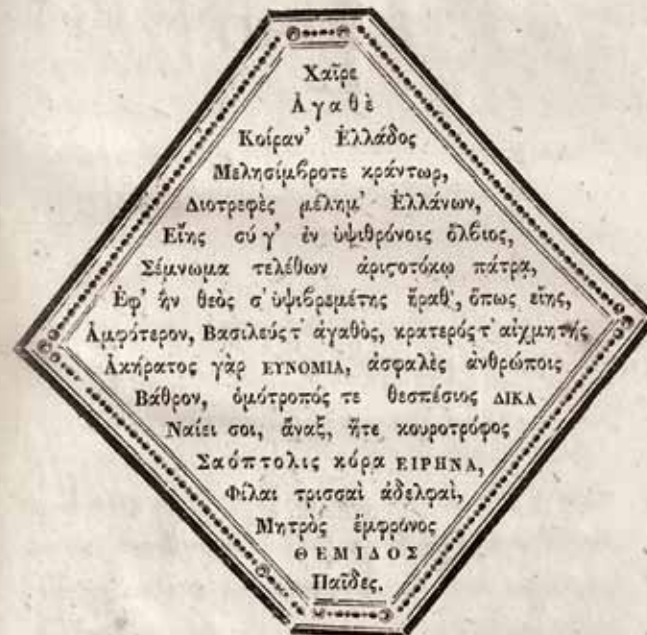 Χαῖρε
Ἀγαθὲ
Κοίραν' Ἑλλάδος
Μελησίμβροτε κράντωρ,
Διοτρεφὲς μέλημ' Ἑλλάνων,
Εἴης σύ γ' ἐν ὑψιθρόνοις ὄλβιος,
Σέμνωμα τελέθων ἀριστοτόκῳ πάτρᾳ,
Ἐφ' ἣν θεὸς σ' ὑψιβρεμέτης ἤραθ', ὅπως εἴης,
Ἀμφότερον, Βασιλεύς τ' ἀγαθὸς, κρατερός τ' αἰχμητής
Ἀκήρατος γὰρ ΕΥΝΟΜΙΑ, ἀσφαλὲς ἀνθρώποις
Βάθρον, ὁμότροπός τε θεσπέσιος ΔΙΚΑ
Ναίει σοι, ἄναξ, ἥτε κουροτρόφος
Σαόπτολις κόρα ΕΙΡΗΝΑ,
Φίλαι τρισσαὶ ἀδελφαὶ,
Μητρὸς ἔμφρονος
ΘΕΜΙΔΟΣ
Παῖδες.